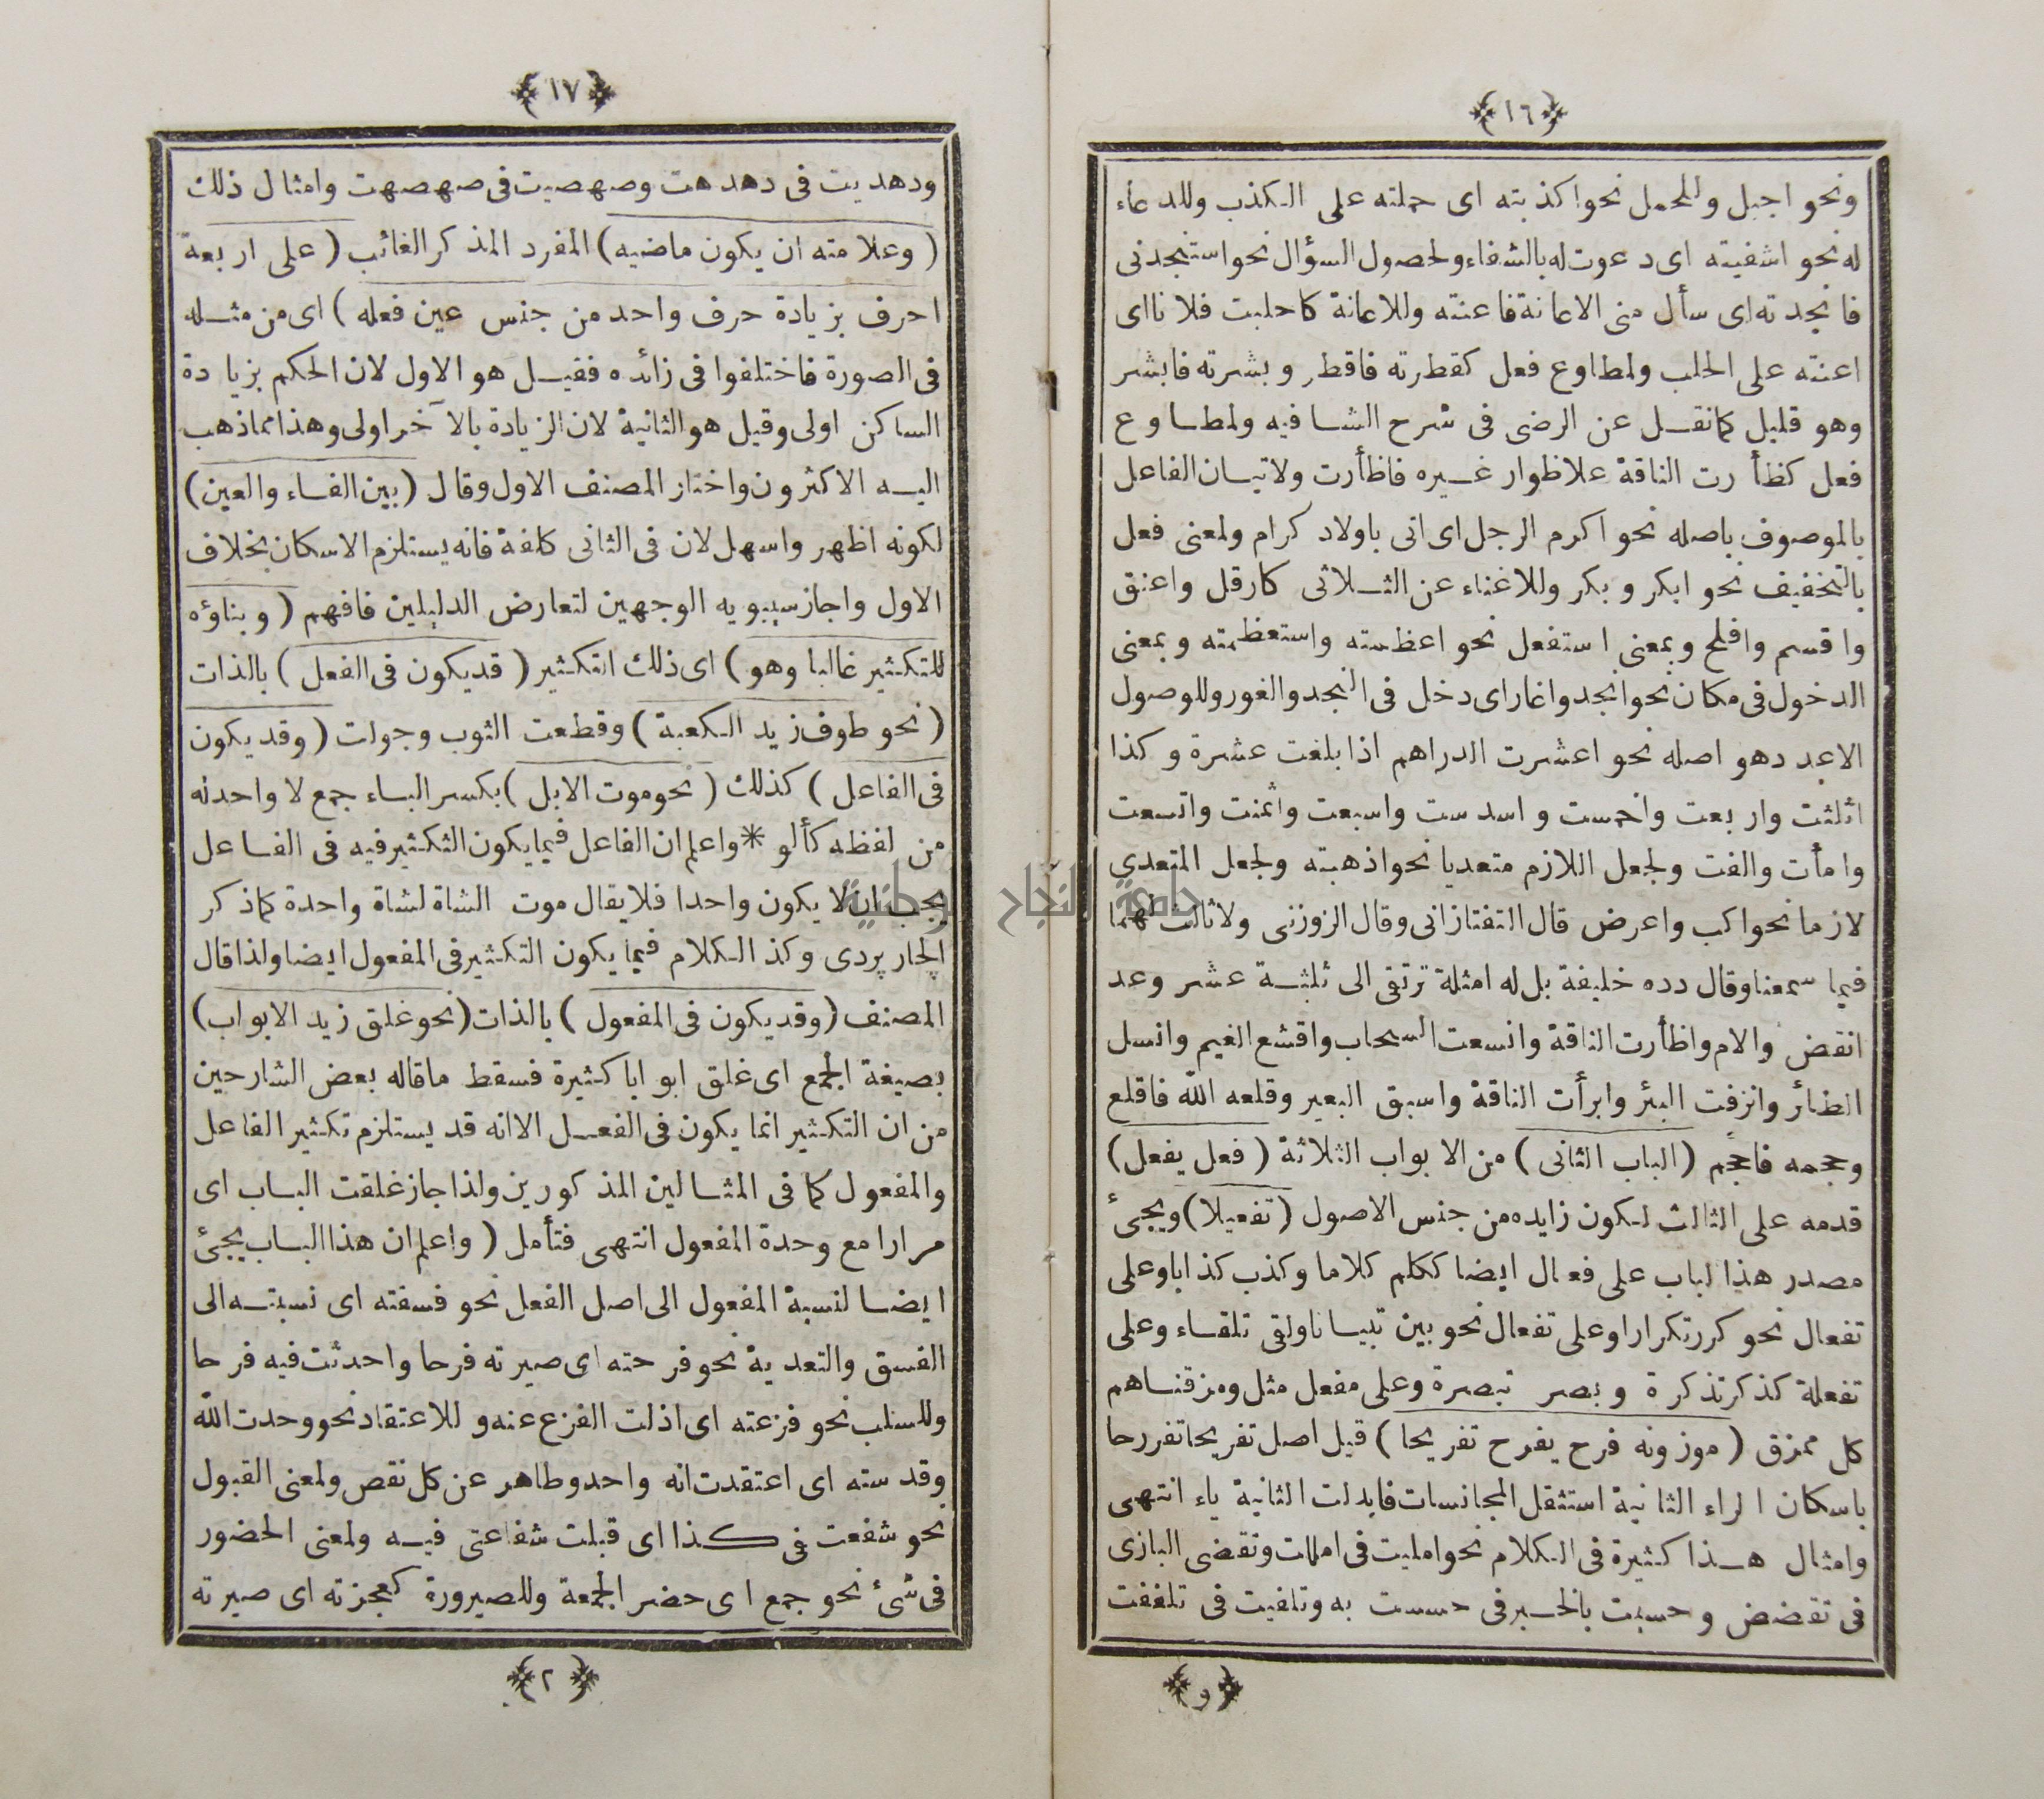 ﴿١٦﴾
ونحو اجبل وللحمل نحوا كذبته اى حملته على الكذب وللدعاء
له نحو اشفيته اى دعوت له بالشفاء ولحصول السؤال نحو استنجدنى
فانجدته اى سأل منى الاعانة فاعنته وللاعانة كاحلبت فلانا اى
اعنته على الحلب ولمطاوع فعل كقطرته فاقطر وبشرته فابشر
وهو قليل كمانقل عن الرضى فى شرح الشافيه ولمطاوع
فعل كظأرت الناقة علاظوار غيره فاظأرت ولاتيان الفاعل
بالموصوف باصله نحو اكرم الرجل اى اتى باولاد كرام ولمعنى فعل
بالتخفيف نحو ابكر وبكر وللاغناء عن الثلاثى كارقل واعنق
واقسم وافلح وبمعنى استفعل نحو اعظمته واستعظمته وبمعنى
الدخول فى مكان نحوانجد واغاراى دخل فى النجد والغور وللوصول
الاعبد دهو اصله نحو اعشرت الدراهم اذا بلغت عشرة وكذا
اثلثت واربعت واخمست واسدست واسبعت واثمنت واتسعت
وامأت والفت ولجعل اللازم متعديا نحواذهبته ولجعل المتعدى
لازما نحواكب واعرض قال التفتازانى وقال الزوزنى ولاثالث لهما
فيما سمعنا وقال دده خليفة بل له امثلة ترتقى الى ثلثة عشر وعد
انقض والام واظأرت الناقة وانسعت السحاب واقشع الغيم وانسل
الطائر وانزفت البئر وابرأت الناقة واسبق البعير وقلعه الله فاقلع
وحجمه فاحجم (الباب الثانى) من الابواب الثلاثة (فعل يفعل)
قدمه على الثالث لكون زايده من جنس الاصول (تفعيلا) ويجئ
مصدر هذا لباب على فعال ايضا ككلم كلاما وكذب كذابا وعلى
تفعال نحو كررتكرارا وعلى تفعال نحو بين تبيانا ولقى تلقاء وعلى
تفعلة كذكرتذكرة وبصر تبصرة وعلى مفعل مثل ومزقناهم
كل ممزق (موزونه فرح يفرح تفريحا) قيل اصل تفريحا تفررحا
باسكان الراء الثانية استثقل المجانسات فابدلت الثانية ياء انتهى
وامثال هذا كثيرة فى الكلام نحوامليت فى امللت وتقضى البازى
فى تقضض وحسيت بالخبر فى حسست به وتلفيت فى تلففت
﴿و﴾
﴿١٧﴾
ودهديت فى دهدهت وصهصيت فى صهصهت وامثال ذلك
(وعلامته ان يكون ماضيه) المفرد المذكر الغائب (على اربعة
احرف بزيادة حرف واحد من جنس عين فعله) اى من مثله
فى الصورة فاختلفوا فى زائده فقيل هو الاول لان الحكم بزيادة
الساكن اولى وقيل هو الثانية لان الزيادة بالآخر اولى وهذا مماذهب
اليه الاكثرون واختار المصنف الاول وقال (بين الفاء والعين)
لكونه اظهر واسهل لان فى الثانى كلفة فانه يستلزم الاسكان بخلاف
الاول واجاز سيبويه الوجهين لتعارض الدليلين فافهم (وبناؤه
للتكثير غالبا وهو) اى ذلك التكثير (قديكون فى الفعل) بالذات
(نحو طوف زيد الكعبة) وقطعت الثوب وجولت (وقد يكون
فى الفاعل) كذلك (نحو موت الابل) بكسر الباء جمع لا واحدله
من لفظه كألو * واعلم ان الفاعل فيما يكون التكثير فيه فى الفاعل
يجب ان لا يكون واحدا فلا يقال موت الشاة لشاة واحدة كماذكر
الچارپردى وكذ الكلام فيما يكون التكثير فى المفعول ايضا ولذا قال
المصنف (وقديكون فى المفعول) بالذات (نحو غلق زيد الابواب)
بصيغة الجمع اى غلق ابوابا كثيرة فسقط ماقاله بعض الشارحين
من ان التكثير انما يكون فى الفعل الا انه قد يستلزم تكثير الفاعل
والمفعول كما فى المثالين المذكورين ولذا جاز غلقت الباب اى
مرارا مع وحدة المفعول انتهى فتأمل (واعلم ان هذا الباب يجئ
ايضا لنسبة المفعول الى اصل الفعل نحو فسقته اى نسبته الى
الفسق والتعدية نحو فرحته اى صيرته فرحا واحدثت فيه فرحا
وللسلب نحو فزعته اى ازلت الفزع عنه وللاعتقاد نحو وحدت الله
وقدسته اى اعتقدت انه واحد وطاهر عن كل نقص ولمعنى القبول
نحو شفعت فى كذا اى قبلت شفاعتى فيه ولمعنى الحضور
فى شئ نحو جمع اى حضر الجمعة وللصيرورة كعجزته اى صيرته
﴿٢﴾
جامعة النجاح الوطنية